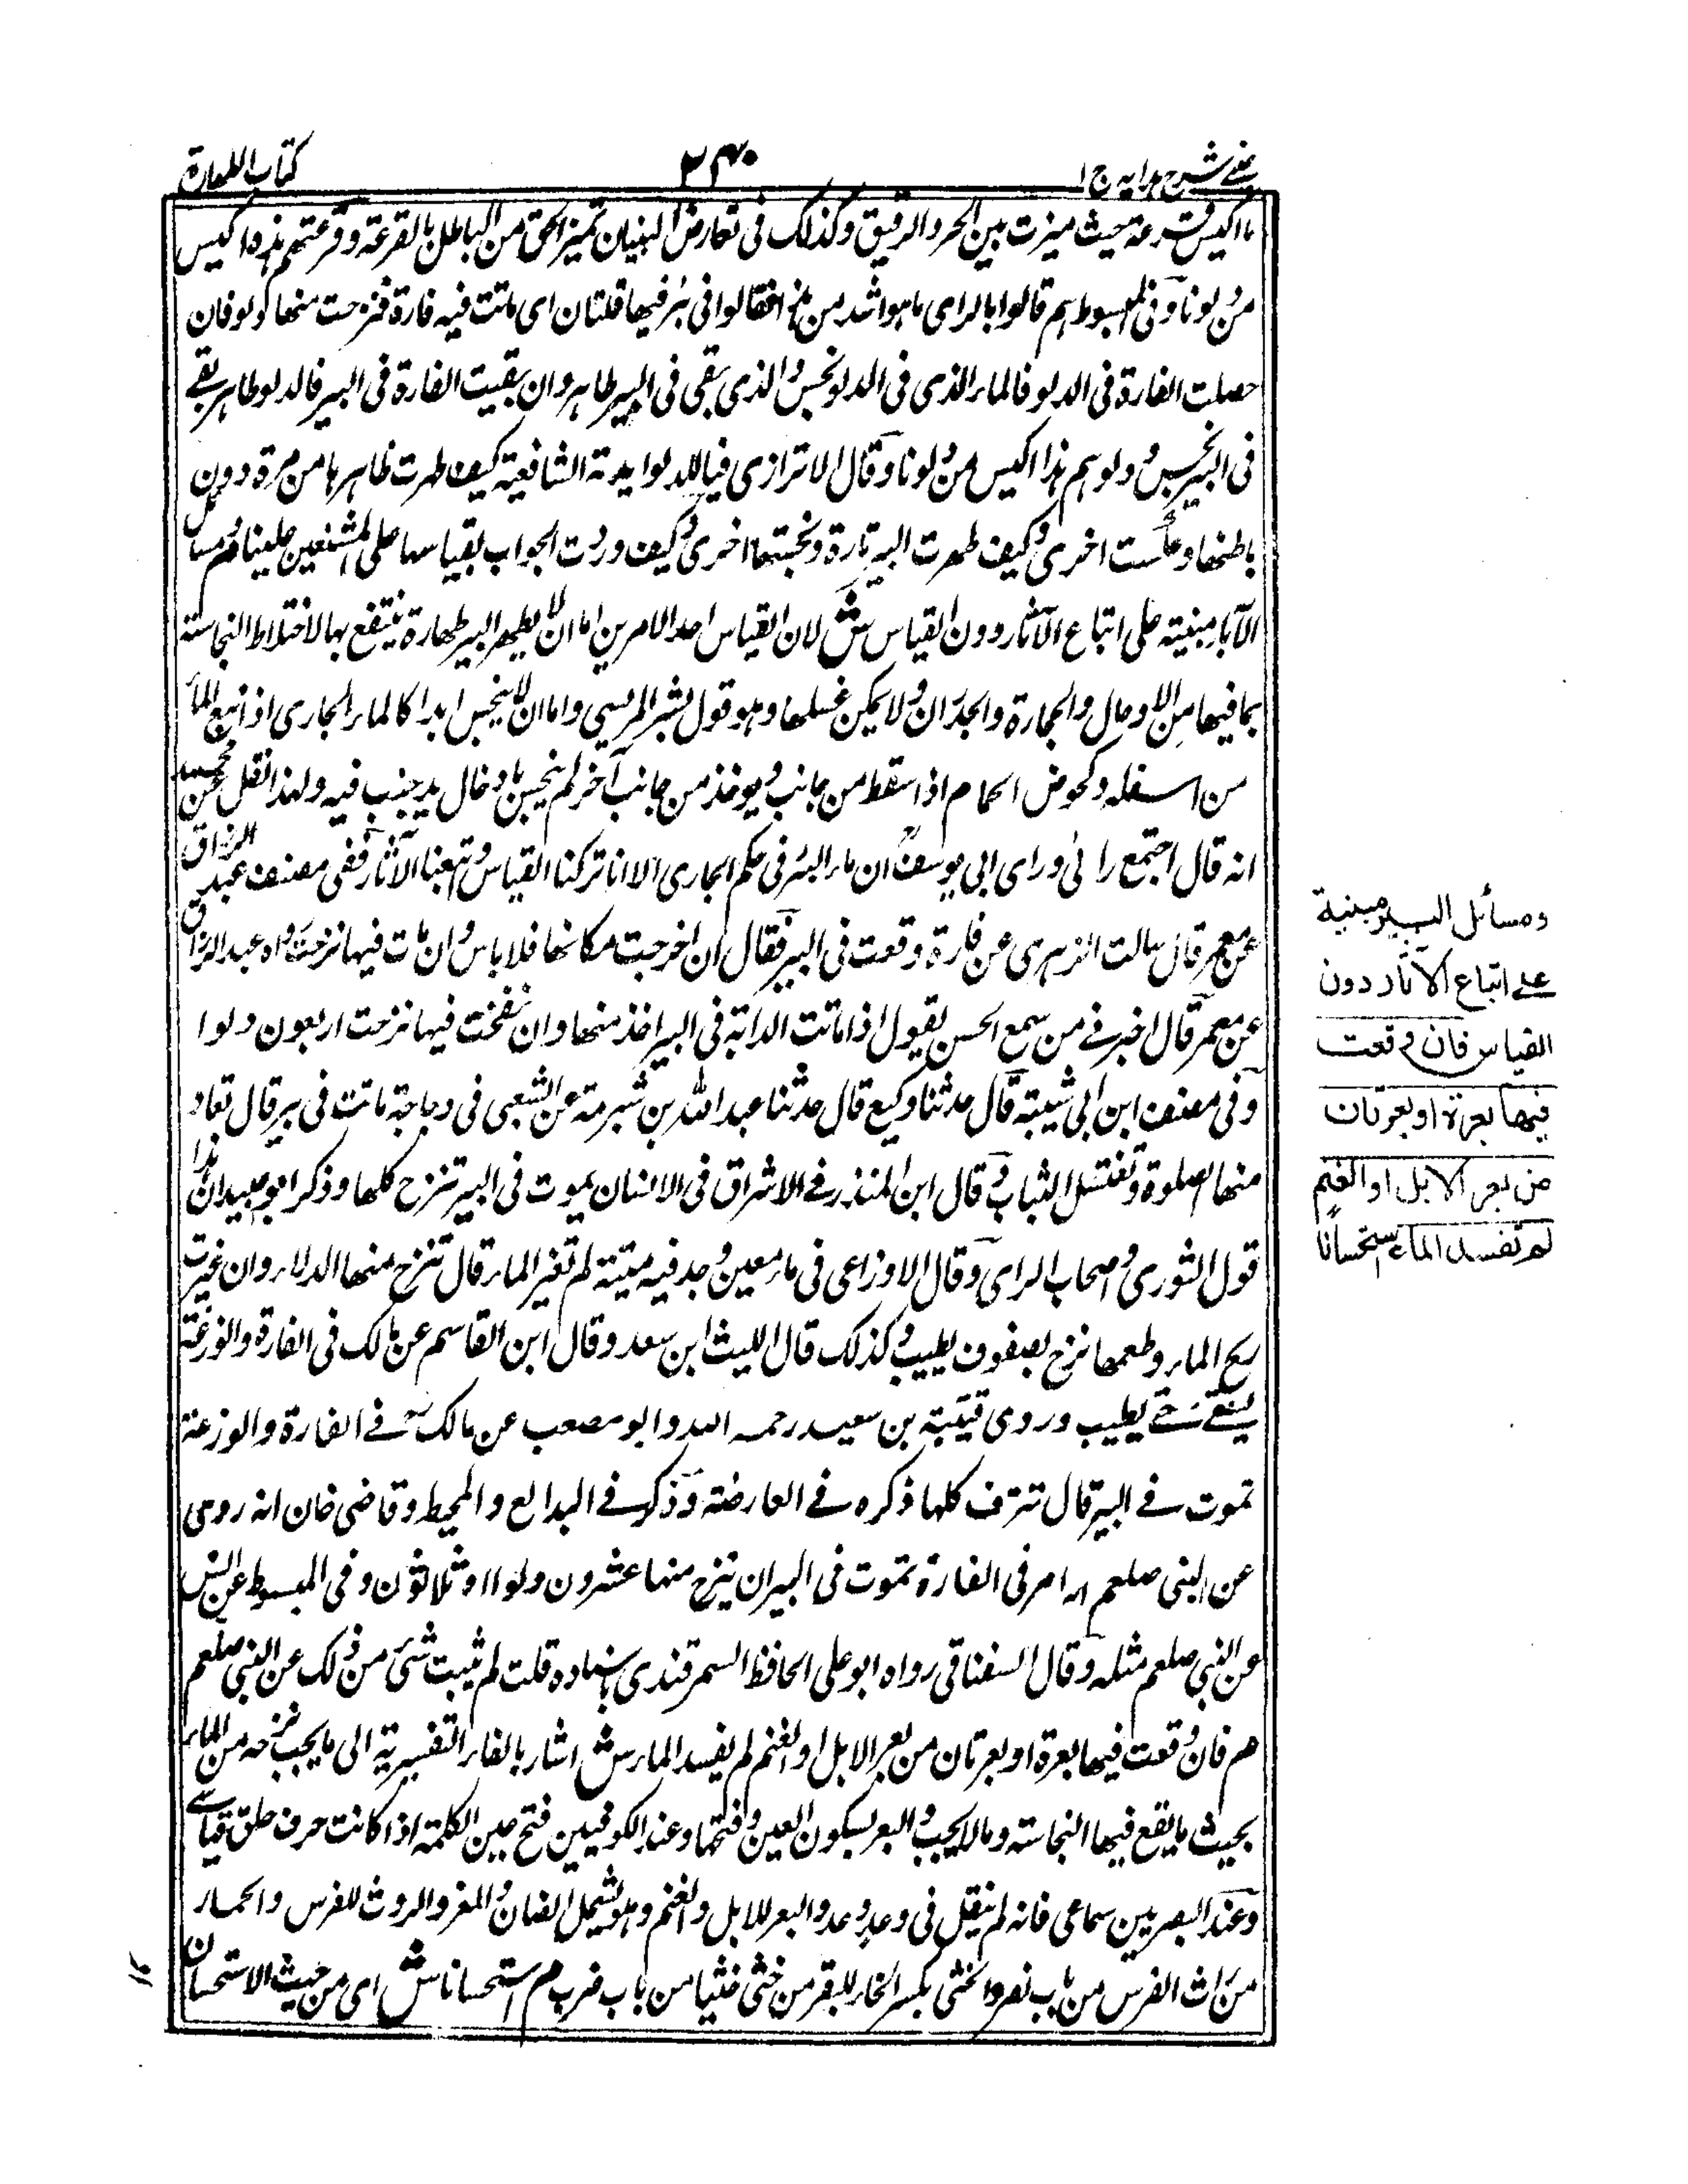 عينى شرح هدايه ج ١
٢٣٠
كتاب الطهارة
ما اكيس قرعة حيث ميزت بين الحر والرقيق وكذلك فى تعارض البنيان تميز الحق من الباطل بالقرعة وقرعتهم هذه اكيس
من دلونا وفى المبسوط هم قالوا بالراى ما هو اشد من هذا فقالوا فى بئر فيها قلتان اى ماتت فيه فارة فنزحت منها دلو فان
حصلت الفارة فى الدلو فالماء الذى فى الدلو نجس والذى بقى فى البير طاهر وان بقيت الفارة فى البير فالدلو طاهر بقے
فى البير نجس ودلوهم هذا اكيس من دلونا وقال الاترازى فيا للدلو ايدته الشافعية كيف طهرت ظاهرها من مرة دون
باطنها وعكست اخرى وكيف طهرت البير تارة ونجستها اخرى وكيف وردت الجواب بقياسها على المشنعين علينا هم مسائل
الآبار مبنية على اتباع الآثار دون القياس ش لان القياس احد الامرين اما ان لا يطهر البير طهارة ينتفع بها لاختلاط النجاسة
بما فيها من الاوحال والحجارة والجدران ولا يمكن غسلها وهو قول بشر المريسي واما ان لا ينجس ابدا كالماء الجارى اذا نبع الماء
من اسفله وكحوض الحمام اذا سقط من جانب ويوخذ من جانب آخر لم ينجس بادخال يد جنب فيه ولهذا نقل عن محمد
انه قال اجتمع رائى وراى ابى يوسف ان ماء البئر فى حكم الجارى الا انا تركنا القياس واتبعنا الآثار ففى مصنف عبد الرزاق
عن معمر قال سالت الزهرى عن فارة وقعت فى البير فقال ان اخرجت مكانها فلا باس وان ماتت فيها نزحت رواه عبد الرزاق
عن معمر قال اخبرنے من سمع الحسن يقول اذا ماتت الدابة فى البير اخذ منها وان تفسخت فيها نزحت اربعون دلوا
وفى مصنف ابن ابى شيبة قال حدثنا وكيع قال حدثنا عبد الله بن شبرمة عن الشعبى فى دجاجة ماتت فى بير قال تعاد
منها الصلوة وتغتسل الثياب وقال ابن المنذر فے الاشراق فى الانسان يموت فى البير تنزح كلها وذكر ابو عبيد ان هذا
قول الثورى واصحاب الراى وقال الاوزاعى فى ماء معين وجد فيه ميتة لم تغير الماء قال تنزح منها الدلاء وان غيرت
ريح الماء وطعمها نزح يصفو ويطيب وكذلك قال الليث ابن سعد وقال ابن القاسم عن مالك فى الفارة والوزغة
يستقے حتے يطيب وروى قتيبة بن سعيد رحمه الله وابو مصعب عن مالك فے الفارة والوزغة
تموت فے البير قال تنزف كلها ذكره فے العارضة وذكر فے البدائع والمحيط وقاضى خان انه روى
عن النبى صلعم انه امر فى الفارة تموت فى البير ان ينزح منها عشرون دلوا او ثلاثون وفى المبسوط عن انس
عن النبي صلعم مثله وقال السغناقى رواه ابو على الحافظ السمرقندى باسناده قلت لم يثبت شئ من ذلك عن النبي صلعم
هم فان وقعت فيها بعرة او بعرتان من بعر الابل او الغنم لم يفسد الماء ش اشار بالفاء التفسيرية الى ما يجب نزحه من الماء
بحيث ما يقع فيها النجاسة وما لا يجب والبعر بسكون العين وفتحها وعند الكوفيين فتح عين الكلمة اذا كانت حرف حلق قياسے
وعند البصريين سماعى فانه لم ينقل فى وعد وعد والبعر للابل والغنم وهو يشمل الضان والمعز والروث للفرس والحمار
من راث الفرس من باب نصر والخثى بكسر الخاء للبقر من خثى خثيا من باب ضرب م استحسانا ش اى من حيث الاستحسان
ومسائل البير مبنية
علے اتباع الاثار دون
القياس فان وقعت
فيها بعرة او بعرتان
من بعر الابل او الغنم
لم تفسد الماء استحسانا
١٢